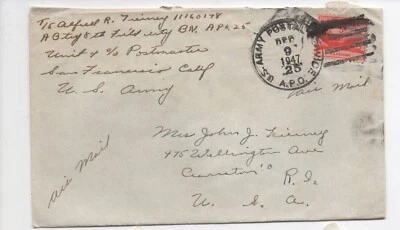 T/5 Alfred R. Tierney 11160178
A Btry 8th Field Arty BN. APO. 25
Unit 4 c/o Postmaster
San Francisco Calif
U. S. Army
U.S. ARMY POSTAL SERVICE
APR
9
1947
25
A.P.O.
Air Mail
Mrs John J. Tierney
475 Wellington Ave
Cranston R. I.
U. S. A.
Air Mail